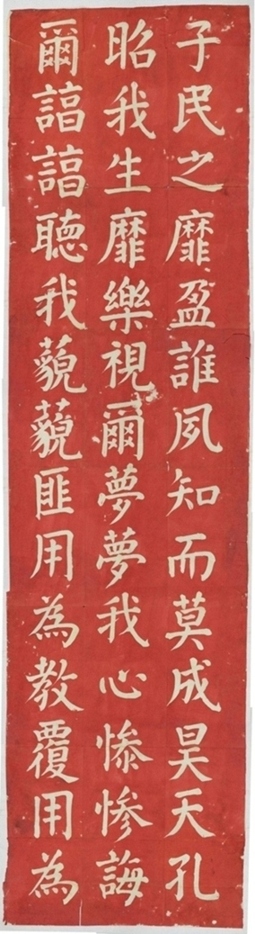 子民之靡盈誰夙知而莫成昊天孔
昭我生靡樂視爾夢夢我心惨惨誨
爾諄諄聽我藐藐匪用為教覆用為